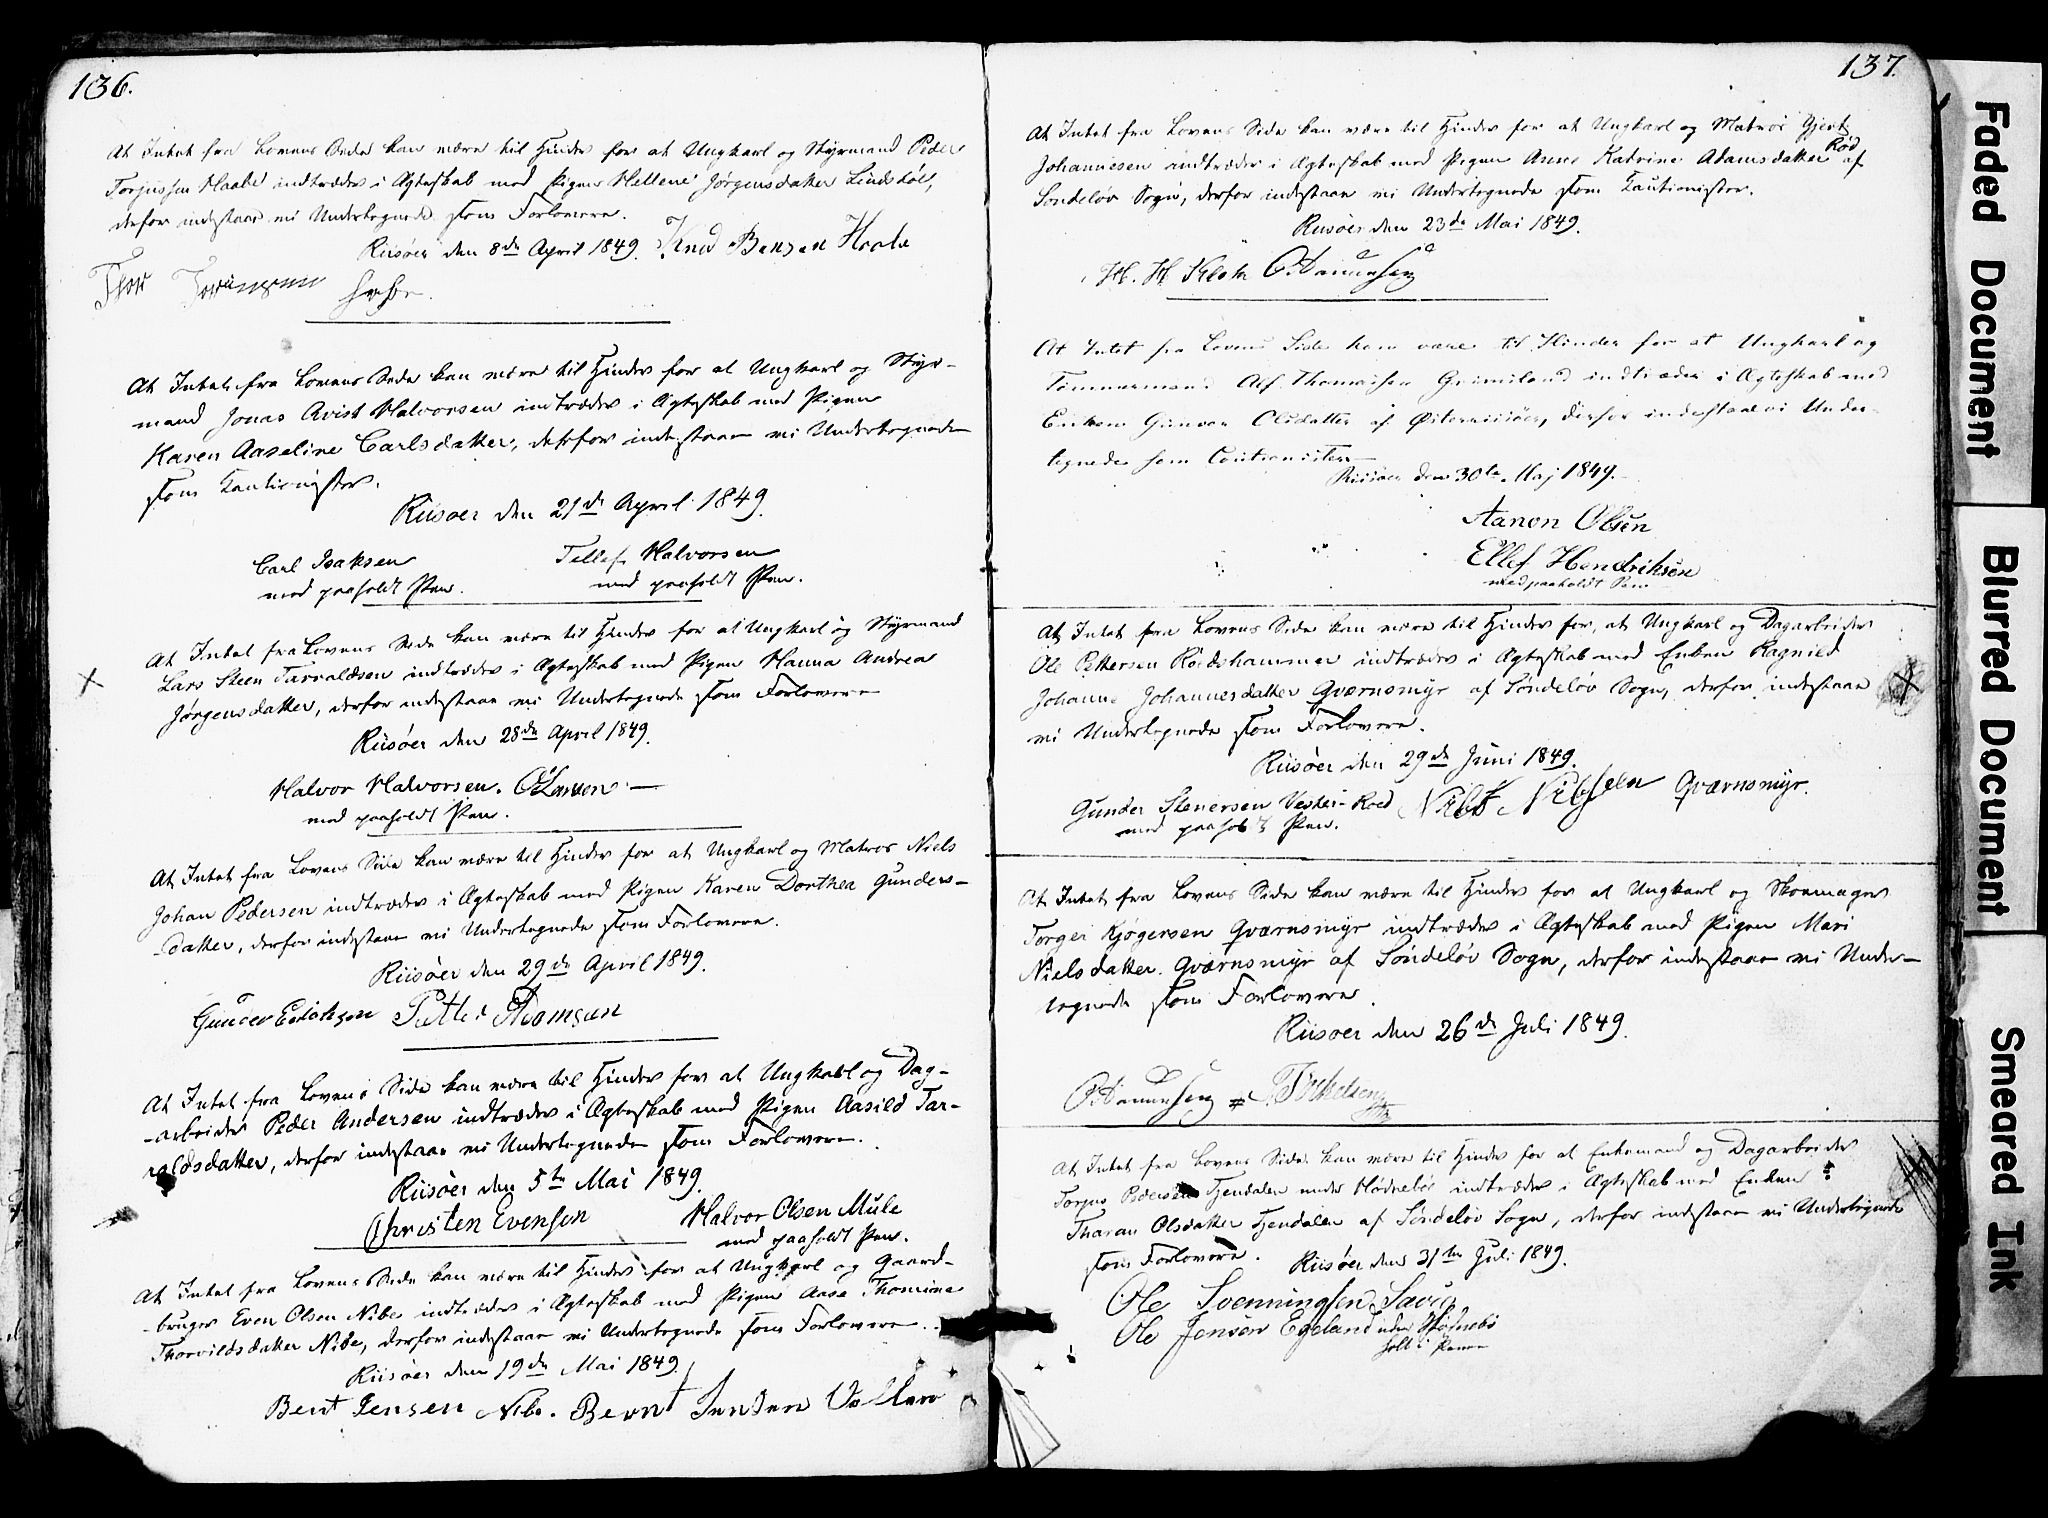 136.
At Intet fra Lovens Side kan være til Hinder for at Ungkarl og Styrmand Peder
Torjussen Haabe indtræder i Ægteskab med Pigen Hellene Jørgensdatter Lindstøl,
derfor indestaae vi Undertegnede som Forlovere.
Riisøer den 8de April 1849. Knud Bensen
At Intet fra Lovens Side kan være til Hinder for at Ungkarl og Styr-
mand Jonas Qvist Halvorsen indtræder i Ægteskab med Pigen
Karen Aaseline Carlsdatter, derfor indestaae vi Undertegnede
som Kautionister.
Riisøer den 21de April 1849.
Carl Isaksen Tellef Halvorsen
med paaholdt Pen. med paaholdt Pen.
At Intet fra Lovens Side kan være til Hinder for at Ungkarl og Styrmand
Lars Steen Tarraldsen indtræder i Ægteskab med Pigen Hanna Andrea
Jørgensdatter, derfor indestaae vi Undertegnede som Forlovere
Riisøer den 28de April 1849.
Halvor Halvorsen. O Larsen
med paaholdt Pen.
At Intet fra Lovens Side kan være til Hinder for at Ungkarl og Matros Niels
Johan Pedersen indtræder i Ægteskab med Pigen Karen Dorthea Gunders-
datter, derfor indestaae vi Undertegnede som Forlovere.
Riisøer den 29de April 1849.
Gunder Thomsen
At Intet fra Lovens Side kan være til Hinder for at Ungkarl og Dag-
-arbeider Peder Andersen indtræder i Ægteskab med Pigen Aasild Tar-
raldsdatter, derfor indestaae vi Undertegnede som Forlovere.
Riisøer den 5te Mai 1849.
Christen Evensen Halvor Olsen Mule
med paaholdt Pen.
At Intet fra Lovens Side kan være til Hinder for at Ungkarl og Gaard-
-bruger Even Olsen Nibe indtræder i Ægteskab med Pigen Aase Thomine
Thorvildsdatter Nibe, derfor indestaae vi Undertegnede som Forlovere.
Riisøer den 19de Mai 1849.
Bent Jensen Nibe. Bernt Jensen
137.
At Intet fra Lovens Side kan være til Hinder for at Ungkarl og Matros Gjert
Johannesen indtræder i Ægteskab med Pigen Anne Katrine Adamsdatter Røed af
Søndeløv Sogn, derfor indestaae vi Undertegnede som Kautionister.
Riisøer den 23de Mai 1849.
H. H.
At Intet fra Lovens Side kan være til Hinder for at Ungkarl og
Tømmermand Alf Thomassen Grimsland indtræder i Ægteskab med
Enken Gunvor Olsdatter af Østerriisøer, derfor indestaae vi Under-
tegnede som Cautionister
Riisøer den 30te Maj 1849.
Aanon Olsen
Ellef Hendriksen
med paaholdt Pen
At Intet fra Lovens Side kan være til Hinder for, at Ungkarl og Dagarbeider
Ole Pettersen Røedshammer indtræder i Ægteskab med Enken Ragnild
Johanne Johannesdatter Qværnsmyr af Søndeløv Sogn, derfor indestaae
vi Undertegnede som Forlovere.
Riisøer den 29de Juni 1849.
Gunder Stenersen Vester-Røed Niels Nielsen Qværnsmyr.
med paaholdt Pen.
At Intet fra Lovens Side kan være til Hinder for at Ungkarl og Skoemager
Torger Kjøgersen Qværnsmyr indtræder i Ægteskab med Pigen Mari
Nielsdatter Qværnsmyr af Søndeløv Sogn, derfor indestaae vi Under-
tegnede som Forlovere.
Riisøer den 26de Juli 1849.
Terkelsen
At Intet fra Lovens Side kan være til Hinder for at Enkemand og Dagarbeider
Torjus Pedersen Fjendalen under Hødnebøe indtræder i Ægteskab med Enken
Tharan Olsdatter Fjendalen af Søndeløv Sogn, derfor indestaae vi Undertegnede
som Forlovere. Riisøer den 31te Juli 1849.
Ole Svenningsen Savig
Ole Jensen Egeland under Hødnebø
holt i Pennen
Faded Document
Blurred Document
Smeared Ink